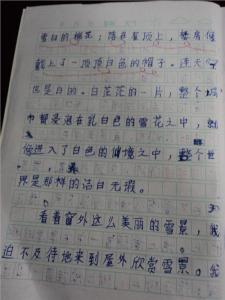 雪白的棉花；落在屋顶上，替房保
戴上了一顶顶白色的帽子。连天空
也是白的。白茫茫的一片，整个城
市都浸泡在乳白色的雪花之中，
进入了白色的仙境之中，整个世
界是那样的洁白无瑕。
看着窗外这么美丽的雪景，我
迫不及待地来到屋外欣赏雪景。我